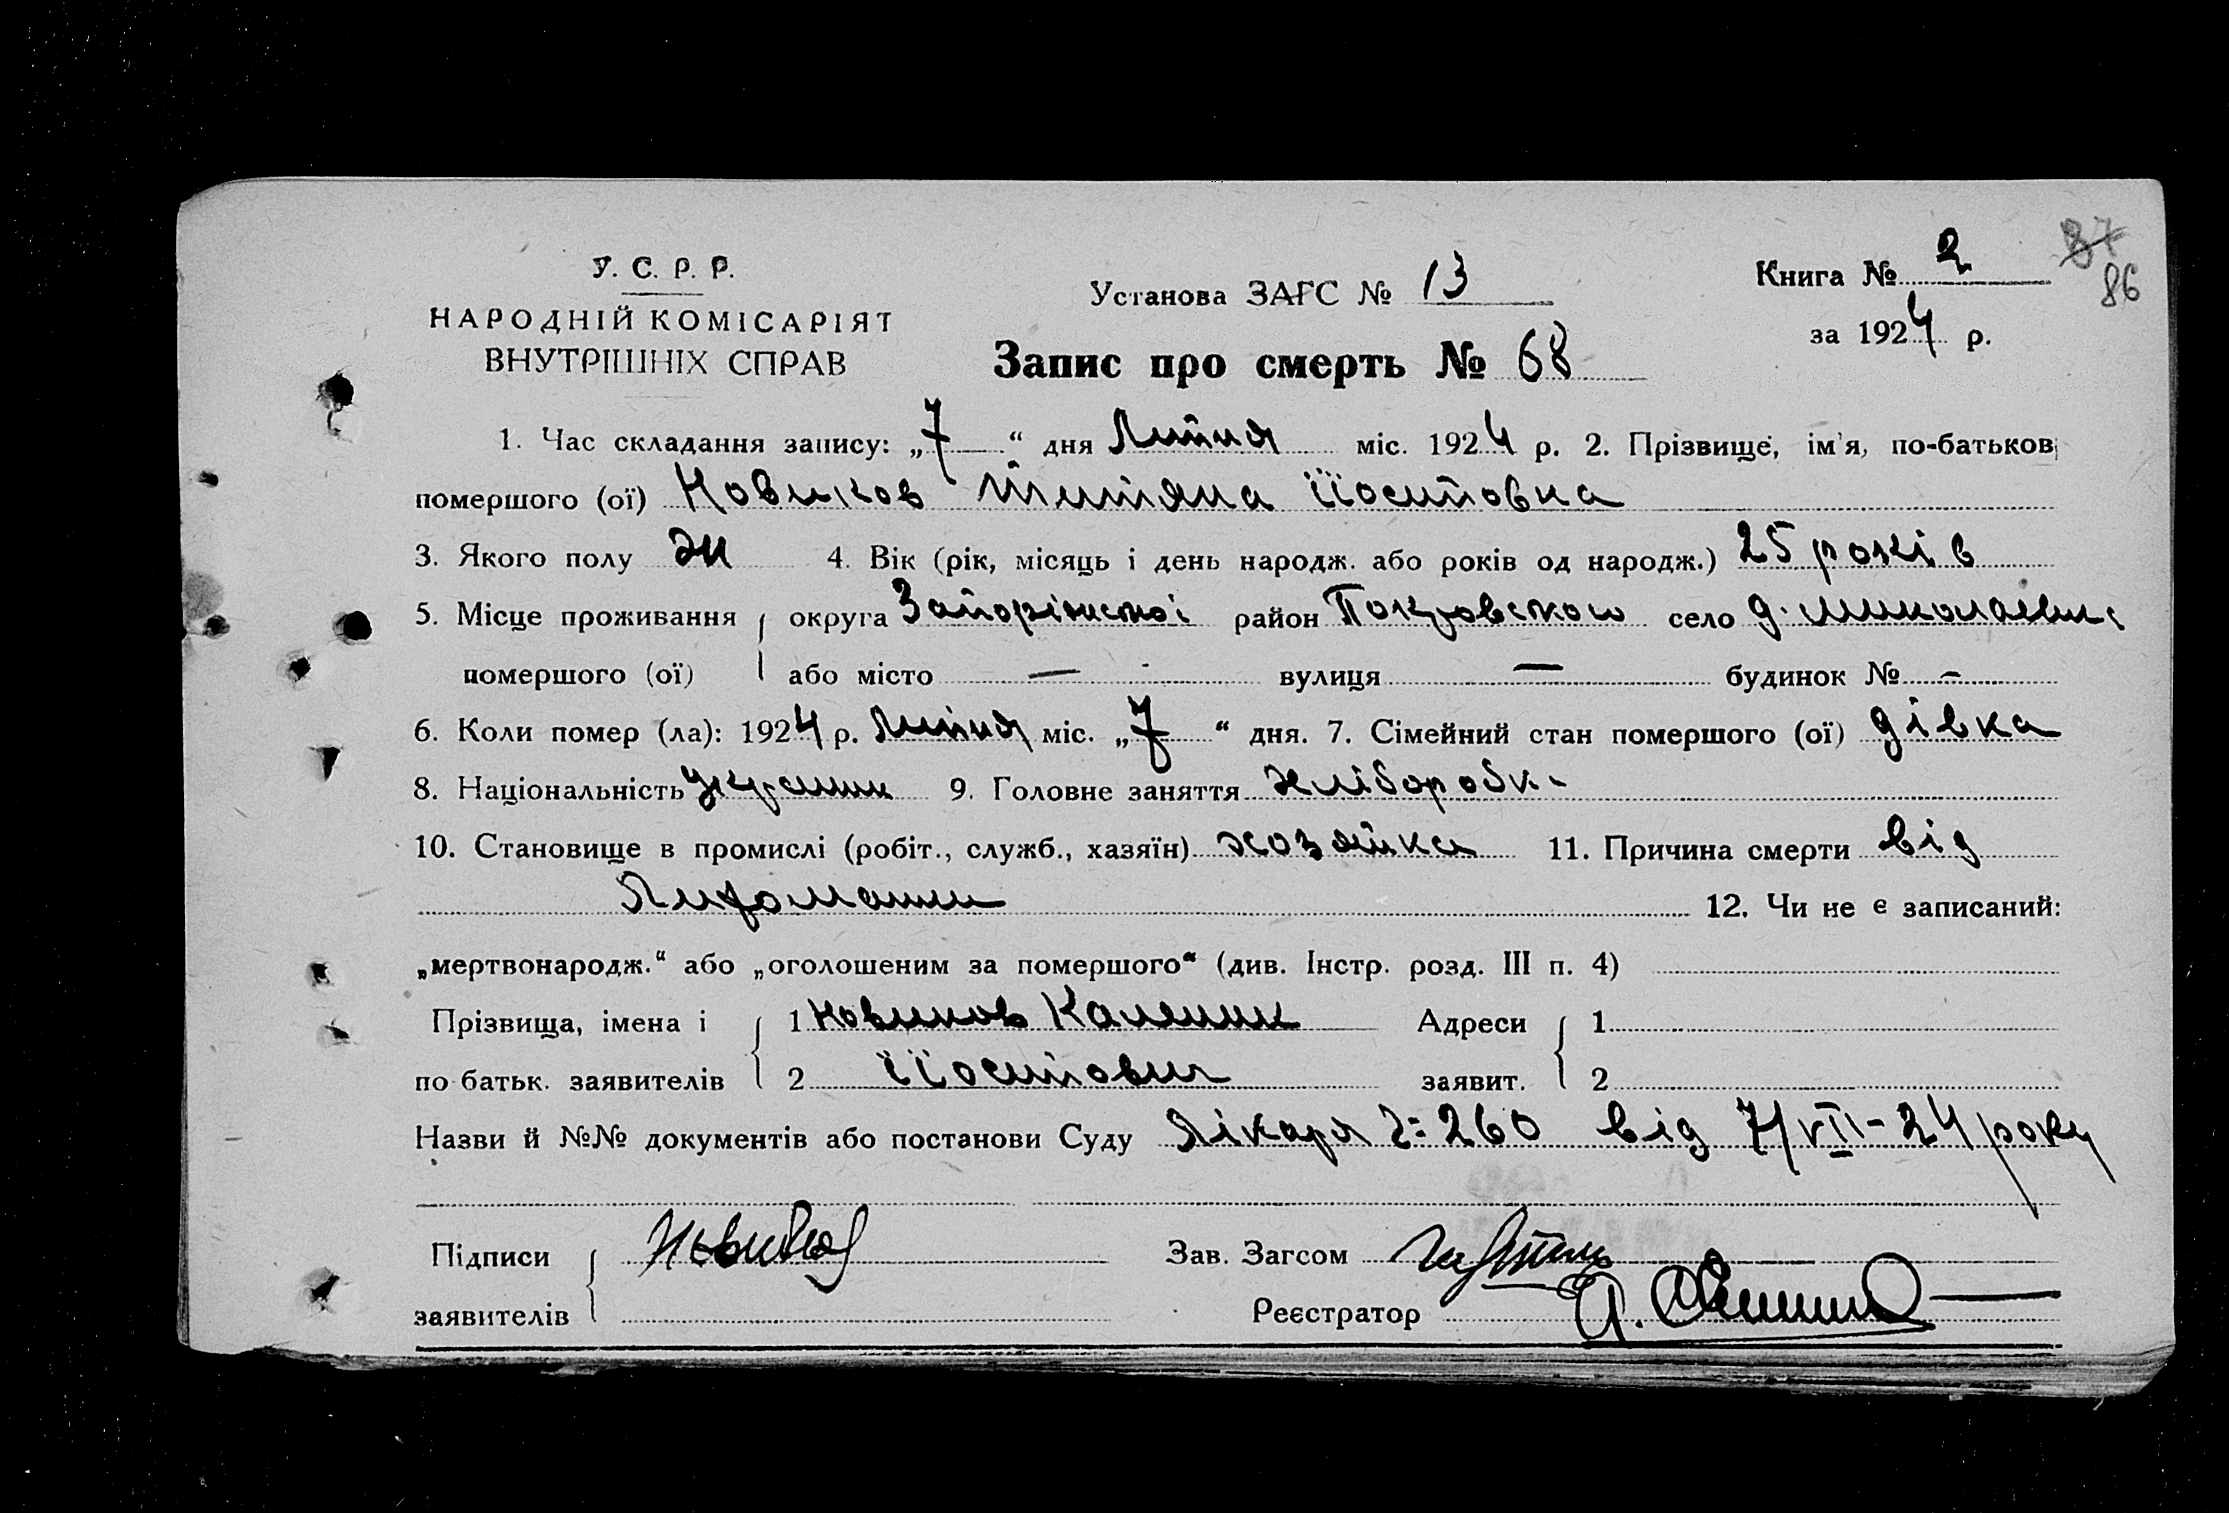 У. С. Р. Р.
НАРОДНІЙ КОМІСАРІЯТ
ВНУТРІШНІХ СПРАВ
Установа ЗАГС № 13
Запис про смерть № 68
Книга № 2
37
86
за 1924 р.
1. Час складання запису: „7“ дня Липня міс. 1924 р. 2. Прізвище, ім'я, по-батькові
помершого (ої) Новиков Титяна Йосиповка
3. Якого полу Ж 4. Вік (рік, місяць і день народж. або років од народж.) 25 років
5. Місце проживання округа Запоріжської район Покровського село д.
помершого (ої) або місто — вулиця — будинок № –
6. Коли помер (ла): 1924 р. Липня міс. „7“ дня. 7. Сімейний стан помершого (ої) дівка
8. Національність 9. Головне заняття хліборобка
10. Становище в промислі (робіт., служб., хазяїн) хозяйка 11. Причина смерти від
12. Чи не є записаний:
„мертвонародж.“ або „оголошеним за помершого“ (див. Інстр. розд. III п. 4)
Прізвища, імена і 1 Новиков Каленик Адреси 1
по батьк. заявителів 2 Йосипович заявит. 2
Назви й №№ документів або постанови Суду Лікаря 260 від 7/VII-24 року
Підписи Новиков Зав. Загсом
заявителів Реєстратор